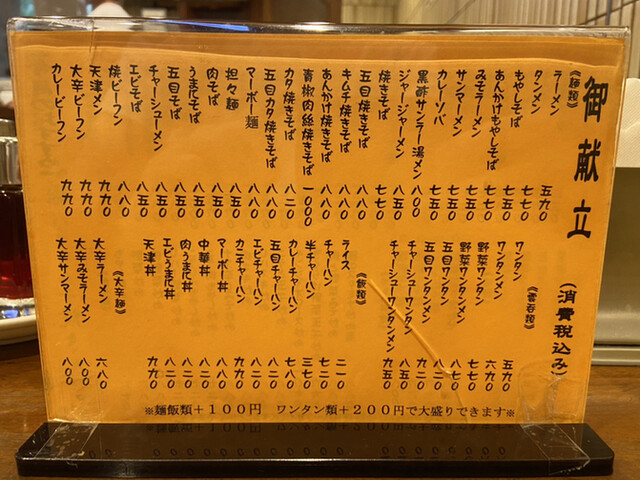 御献立
(消費税込み)
《麺類》
ラーメン 五九〇
タンメン 七七〇
もやしそば 七七〇
あんかけもやしそば 七七〇
みそラーメン 七五〇
サンマーメン 七五〇
カレーソバ 七五〇
黒酢サンラー湯メン 八〇〇
ジャージャーメン 八五〇
焼きそば 七七〇
五目焼きそば 八八〇
キムチ焼きそば 八八〇
あんかけ焼きそば 八八〇
青椒肉絲焼きそば 一〇〇〇
カタ焼きそば 八二〇
五目カタ焼きそば 八八〇
マーボー麺 八八〇
坦々麺 八五〇
肉そば 八五〇
うま煮そば 八五〇
五目そば 八五〇
チャーシューメン 八五〇
エビそば 八五〇
焼ビーフン 八八〇
天津メン 九九〇
大辛ビーフン 九九〇
カレービーフン 九九〇
《雲呑類》
ワンタン 五九〇
ワンタンメン 六九〇
野菜ワンタン 七七〇
野菜ワンタンメン 八七〇
五目ワンタン 八二〇
五目ワンタンメン 九二〇
チャーシューワンタン 八五〇
チャーシューワンタンメン 九五〇
《飯類》
ライス 二一〇
チャーハン 七二〇
半チャーハン 三七〇
カレーチャーハン 七八〇
五目チャーハン 八二〇
エビチャーハン 八二〇
カニチャーハン 九九〇
マーボー丼 八八〇
中華丼 八二〇
肉うま煮丼 八二〇
エビうま煮丼 八二〇
天津丼 九九〇
《大辛麺》
大辛ラーメン 六八〇
大辛みそラーメン 八〇〇
大辛サンマーメン 八〇〇
※麺飯類+100円 ワンタン類+200円で大盛りできます※